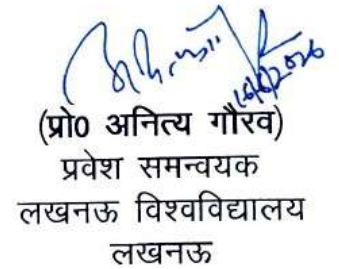 16/6/2026
(प्रो0 अनित्य गौरव)
प्रवेश समन्वयक
लखनऊ विश्वविद्यालय
लखनऊ